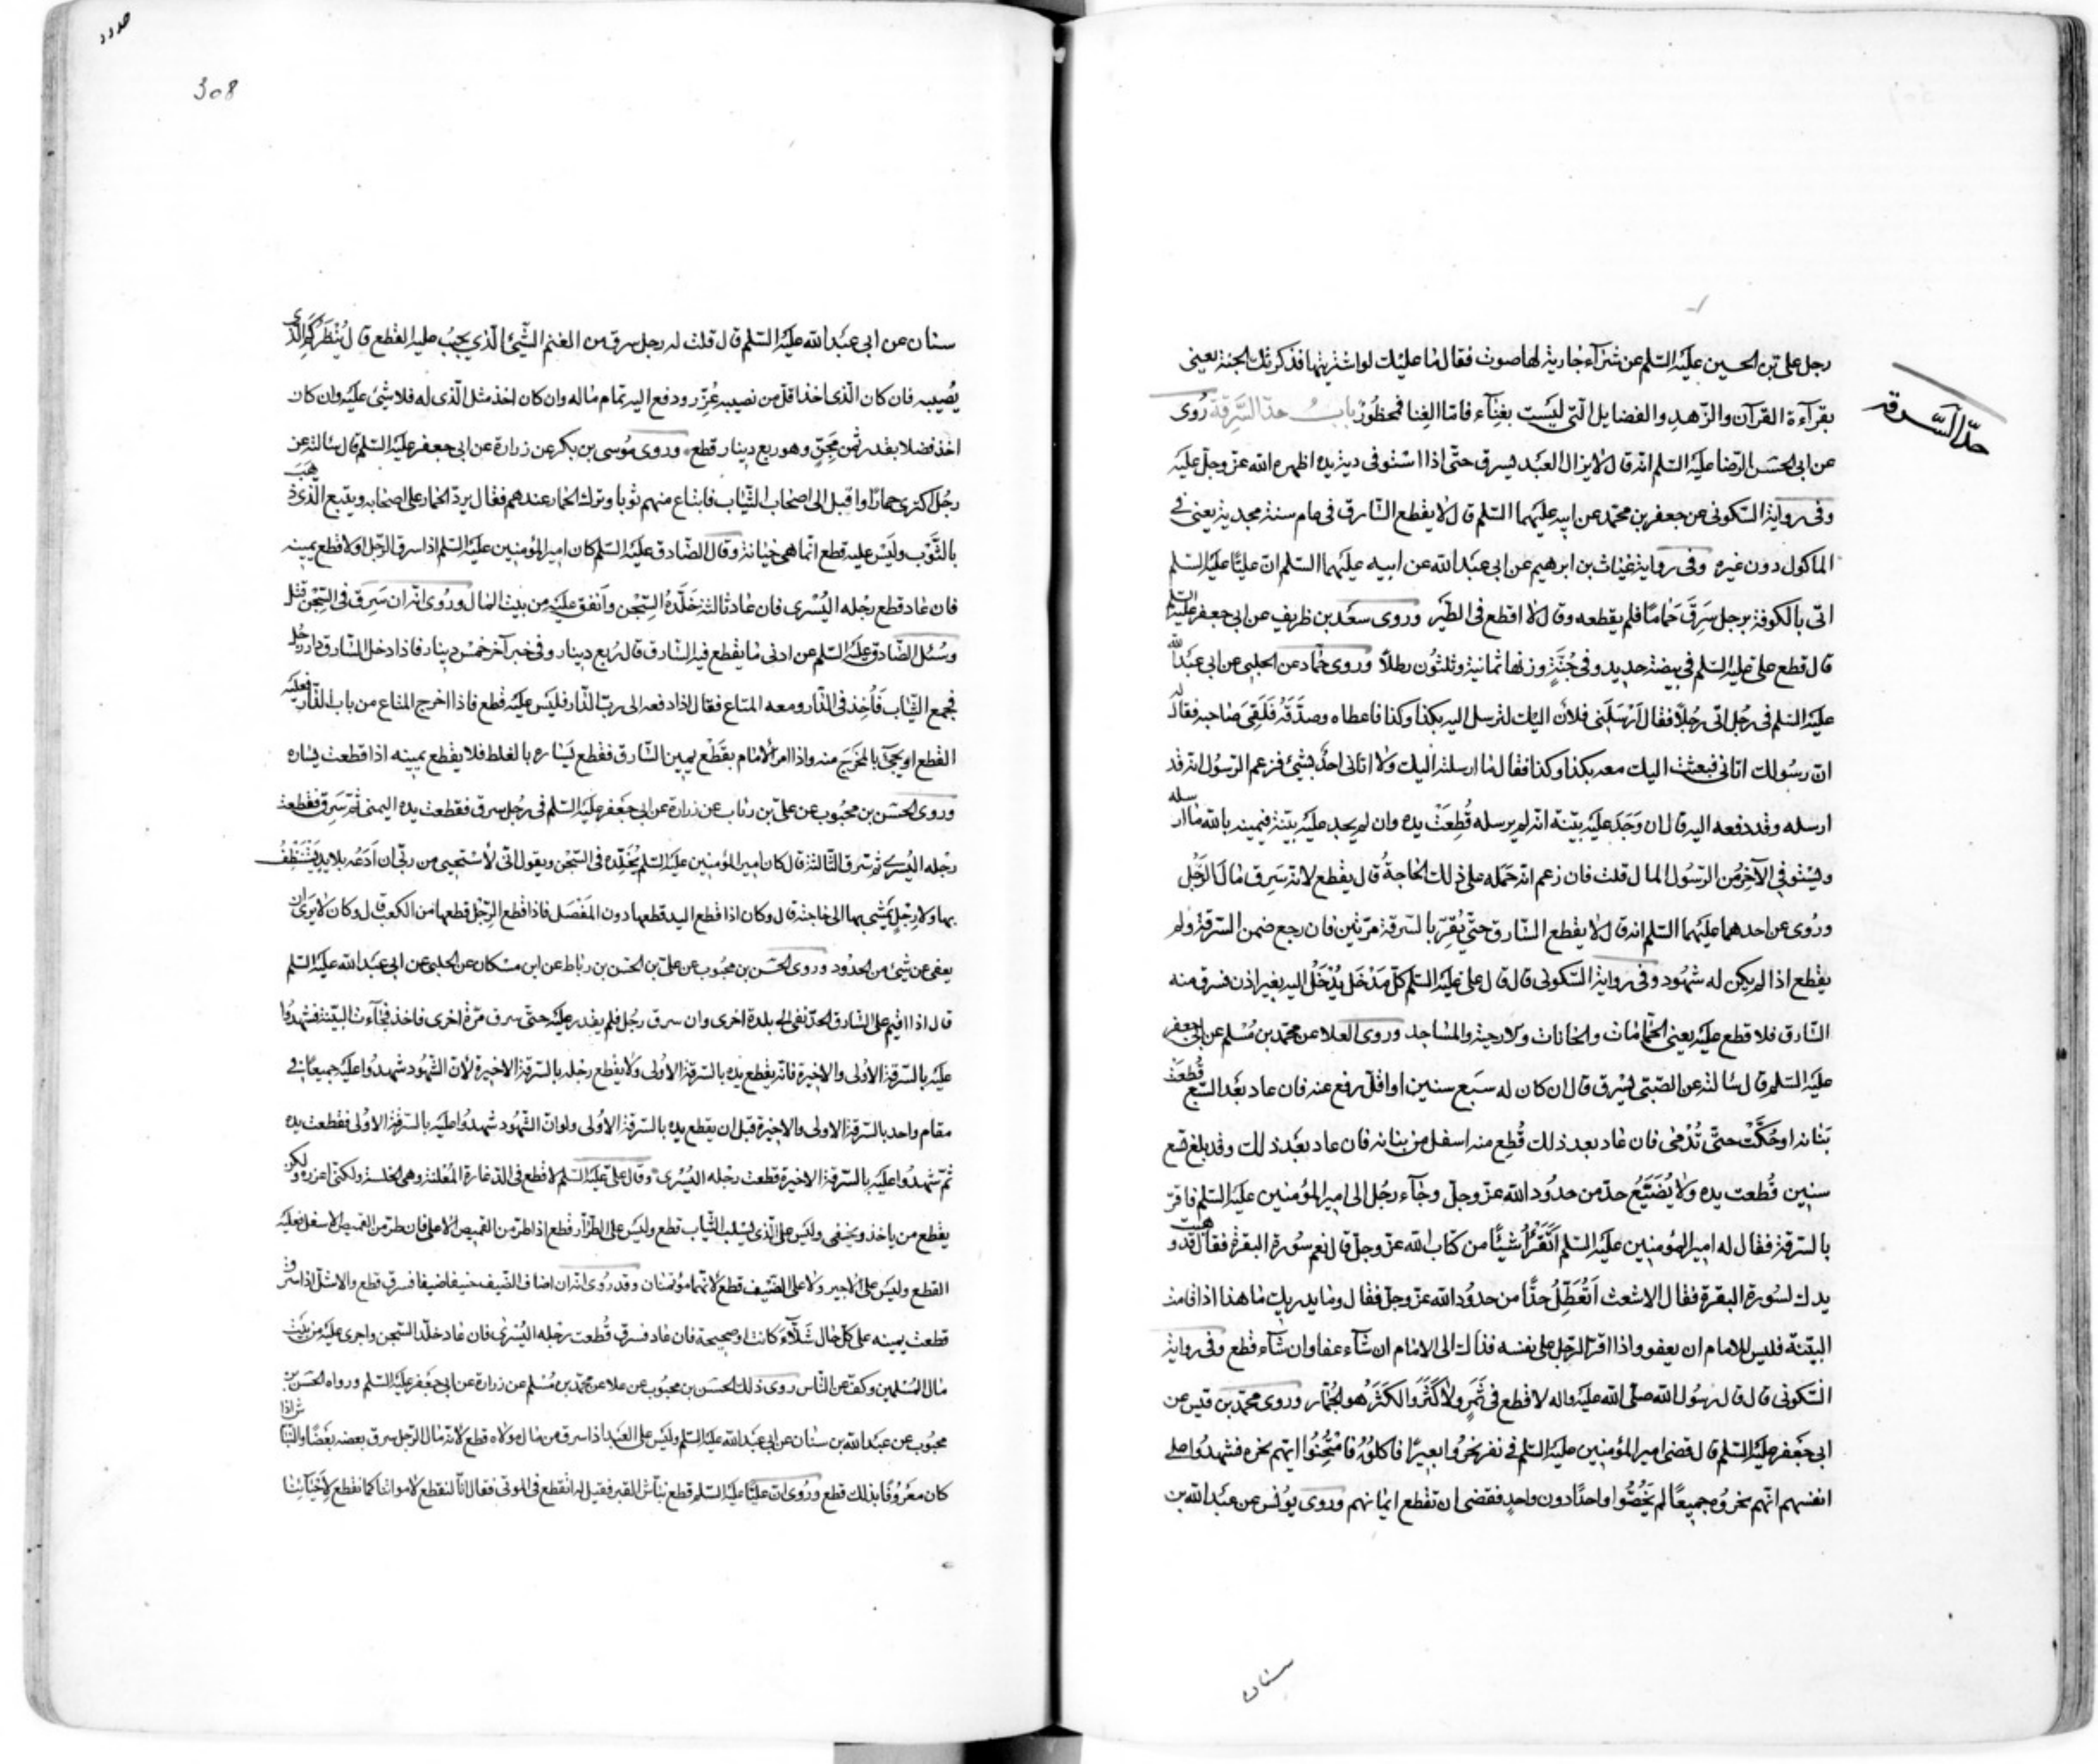 حدّ السّرقة
رجل علی بن الحسین علیه السلم عن شرآء جاریة لها صوت فقال ما علیك لو اشتریتها فذكرتك الجنة یعنی
بقرآءة القرآن والزّهد والفضایل الّتی لیست بغنآء فامّا الغنا فمحظورٌ باب حدّ السّرقة رُوی
عن ابی الحسن الرّضا علیه السلم انّه قال لا یزال العبد یسرق حتّی اذا استوفی دیة یده اظهره الله عزّ وجلّ علیه
وفی روایة السّكونی عن جعفر بن محمّد عن ابیه علیهما السلم قال لا یقطع السّارق فی عام سنة مجدبة یعنی فی
الماكول دون غیره وفی روایة غیاث بن ابرهیم عن ابی عبد الله عن ابیه علیهما السلم انّ علیًّا علیه السلم
اتی بالكوفة برجل سَرِقَ حَمامًا فلم یقطعه وقال لا اقطع فی الطیر وروی سعد بن ظریف عن ابی جعفر علیه السلم
قال قطع علی علیه السلم فی بیضة حدید وفی جُنّةٍ وزنها ثمانیة وثلثون رطلاً وروی حمّاد عن الحلبی عن ابی عبد الله
علیه السلم فی رجل اتی رجُلاً فقال اَرْسَلَنی فلان الیك لترسل الیه بكذا وكذا فاعطاه وصدَّقَهُ فَلَقِیَ صاحبه فقال له
انّ رسولك اتانی فبعثت الیك معه بكذا وكذا فقال ما ارسلته الیك ولا اتانی احدٌ بشیٔ فزعم الرسول انّه قد
ارسله وقد دفعه الیه قال ان وَجَدَ علیه بیّنة انّه لم یرسله قُطِعَتْ یده وان لم یجد علیه بیّنة فیمینه بالله ما ارسله
ویستوفی الآخر من الرسول المال قلت فان زعم انّه حَمَله علی ذلك الحاجةُ قال یقطع لانّه سَرِق مال الرَّجُل
ورُوی عن احدهما علیهما السلم انّه قال لا یقطع السّارق حتّی یُقِرّ بالسّرقة مرّتین فان رجع ضمن السّرقة ولم
یقطع اذا لم یكن له شهُود وفی روایة السّكونی قال قال علی علیه السلم كلّ مَدْخَل یُدْخَلُ الیه بغیر اذن فسرق منه
السّارق فلا قطع علیه یعنی الحمّامات والخانات والارحیة والمساجد وروی العلا عن محمّد بن مُسْلم عن ابی جعفر
علیه السلم قال سالته عن الصّبی یسرق قال ان كان له سبع سنین او اقلّ رفع عنه فان عاد بعد السّبع قُطِعَتْ
بَنانه او حُكَّتْ حتّی تُدْمَی فان عاد بعد ذلك قُطِع منه اسفل من بنانه فان عاد بعد ذلك وقد بلغ تسع
سنین قُطعت یده ولا یُضَیَّعُ حدّ من حدُود الله عزّ وجلّ وجآء رجُل الی امیر المؤمنین علیه السلم فاقرّ
بالسّرقة فقال له امیر المؤمنین علیه السلم اَتَقْرَأُ شیئًا من كتاب الله عزّ وجلّ قال نعم سُورة البقرة فقال قد وهبت
یدك لسُورة البقرة فقال الاشعث اَتُعَطِّلُ حدًّا من حدُود الله عزّ وجلّ فقال وما یدریك ما هذا اذا قامت
البیّنة فلیس للامام ان یعفو واذا اقرّ الرّجل علی نفسه فذاك الی الامام ان شآء عفا وان شآء قطع وفی روایة
السّكونی قال قال رسُول الله صلّی الله علیه واله لا قطع فی ثَمَرٍ ولا كَثَرَ والكَثَرُ هُو الجُمّار وروی محمّد بن قیس عن
ابی جعفر علیه السلم قال قضی امیر المؤمنین علیه السلم فی نفر نحرُوا بعیرًا فاكلوُهُ فامْتُحِنُوا ایّهم نحره فشهدُوا علی
انفسهم انّهم نحروُه جمیعًا لم یَخُصُّوا واحدًا دون واحدٍ فقضی ان تقطع ایمانهم وروی یوُنس عن عبد الله بن
سنان
308
سنان عن ابی عبد الله علیه السلم قال قلت له رجل سرق من الغنم الشّیٔ الّذی یجبُ علیه القطع قال یُنْظَر كم الّذی
یُصیبه فان كان الّذی اخذ اقلّ من نصیبه عُزِّر ودفع الیه تمام ماله وان كان اخذ مثل الّذی له فلا شیٔ علیه وان كان
اخذ فضلا بقدر ثمن مِجَنٍّ وهو ربع دینار قطع وروی مُوسی بن بكر عن زرارة عن ابی جعفر علیه السلم قال سالته عن
رجُل اكتری حمارًا واقبل الی اصحاب الثّیاب فابتاع منهم ثوبا وترك الحمار عندهم فقال یردّ الحمار علی اصحابه ویتبع الّذی ذهب
بالثَّوْب ولیْس علیه قطع انّما هی خیانة وقال الصّادق علیه السلم كان امیر المؤمنین علیه السلم اذا سرق الرّجل اوّلا قطع یمینه
فان عاد قطع رجْله الیُسْری فان عاد ثالثة خَلَّدهُ السّجْن وانفق علیه من بیت المال ورُوی انّه ان سَرِق فی السّجْن قتل
وسُئل الصّادق علیه السلم عن ادنی ما یقطع فیه السّارق قال رُبع دینار وفی خبر آخر خمْس دینار فاذا دخل السّارق دار رجُل
فجمع الثّیاب فَأُخِذَ فی الدّار ومعه المتاع فقال اذا دفعه الی ربّ الدّار فلیس علیه قطع فاذا اخرج المتاع من باب الدّار فعلیه
القطع او یجیٔ بالمَخْرَج منه واذا امر الامام بقَطْع یمین السّارق فقطع یَساره بالغلط فلا یقطع یمینه اذا قطعت یساره
وروی الحسن بن محبُوب عن علی بن رئاب عن زرارة عن ابی جَعفر علیه السلم فی رجُل سرق فقطعت یده الیمنی ثمّ سَرِق فقطعت
رجْله الیُسْری ثم سرق الثّالثة قال كان امیر المؤمنین علیه السلم یُخَلّده فی السّجْن ویقول انّی لاسْتحیی من ربّی ان اَدَعَه بلا یدٍ یَتَنَظّفُ
بها ولا رِجْلٍ یَمْشی بها الی حاجته قال وكان اذا قطع الید قطعها دون المَفْصَل فاذا قطع الرّجْل قطعها من الكعب قال وكان لا یری ان
یعفی عن شیٔ من الحدُود وروی الحسن بن محبُوب عن علی بن الحسن بن رباط عن ابن مسكان عن الحلبی عن ابی عبد الله علیه السلم
قال اذا اقیم علی السّارق الحدّ نفی الی بلدة اخری وان سرق رجُل فلم یقدر علیه حتّی سرق مَرّة اخری فاخذ فجآءت البیّنة فشهدُوا
علیه بالسّرقة الاُولی والاخیرة فانّه یقطع یده بالسّرقة الاُولی ولا یقطع رجْله بالسّرقة الاخیرة لانّ الشّهُود شهدُوا علیه جمیعًا فی
مقام واحد بالسّرقة الاولی والاخیرة قبل ان یقطع یده بالسّرقة الاُولی ولو انّ الشّهُود شهدُوا علیه بالسّرقة الاُولی فقطعت یده
ثمّ شهدُوا علیه بالسّرقة الاخیرة قطعت رجْله الیُسْری وقال علی علیه السلم لا قطع فی الدّغارة المُعْلنة وهی الخلسة ولكنّی اعزره ولكن
یقطع من یاخذ ویخفی ولیس علی الّذی یسْلب الثّیاب قطع ولیس علی الطّرّار قطع اذا طرّ من القمیص الاعلی فان طرّ من القمیص الاسفل فعلیه
القطع ولیس علی الاجیر ولا علی الضّیف قطع لانّهما مؤتمنان وقد رُوی انّه ان اضاف الضّیف ضیفا فسرق قطع والاشلّ اذا سرق
قطعت یمینه علی كلّ حال شَلّآءَ كانت او صحیحة فان عاد فسرق قُطعت رجْله الیُسْری فان عاد خلّد السّجن واجری علیه من بیت
مال المُسْلمین وكفّ عن النّاس روی ذلك الحسن بن محبُوب عن علا عن محمّد بن مُسْلم عن زرارة عن ابی جَعْفر علیه السلم ورواه الحَسن بن
محبُوب عن عبد الله بن سنان عن ابی عبد الله علیه السلم ولیس علی العَبد اذا سرق من مال مولاه قطع لانّه مال الرّجل سرق بعضه بَعضًا والنّبّاش اذا
كان معرُوفًا بذلك قطع ورُوی انّ علیًّا علیه السلم قطع نبّاش القبر فقیل له اتقطع فی الموتی فقال انّا لنقطع لامواتنا كما نقطع لِاَحْیآئِنا